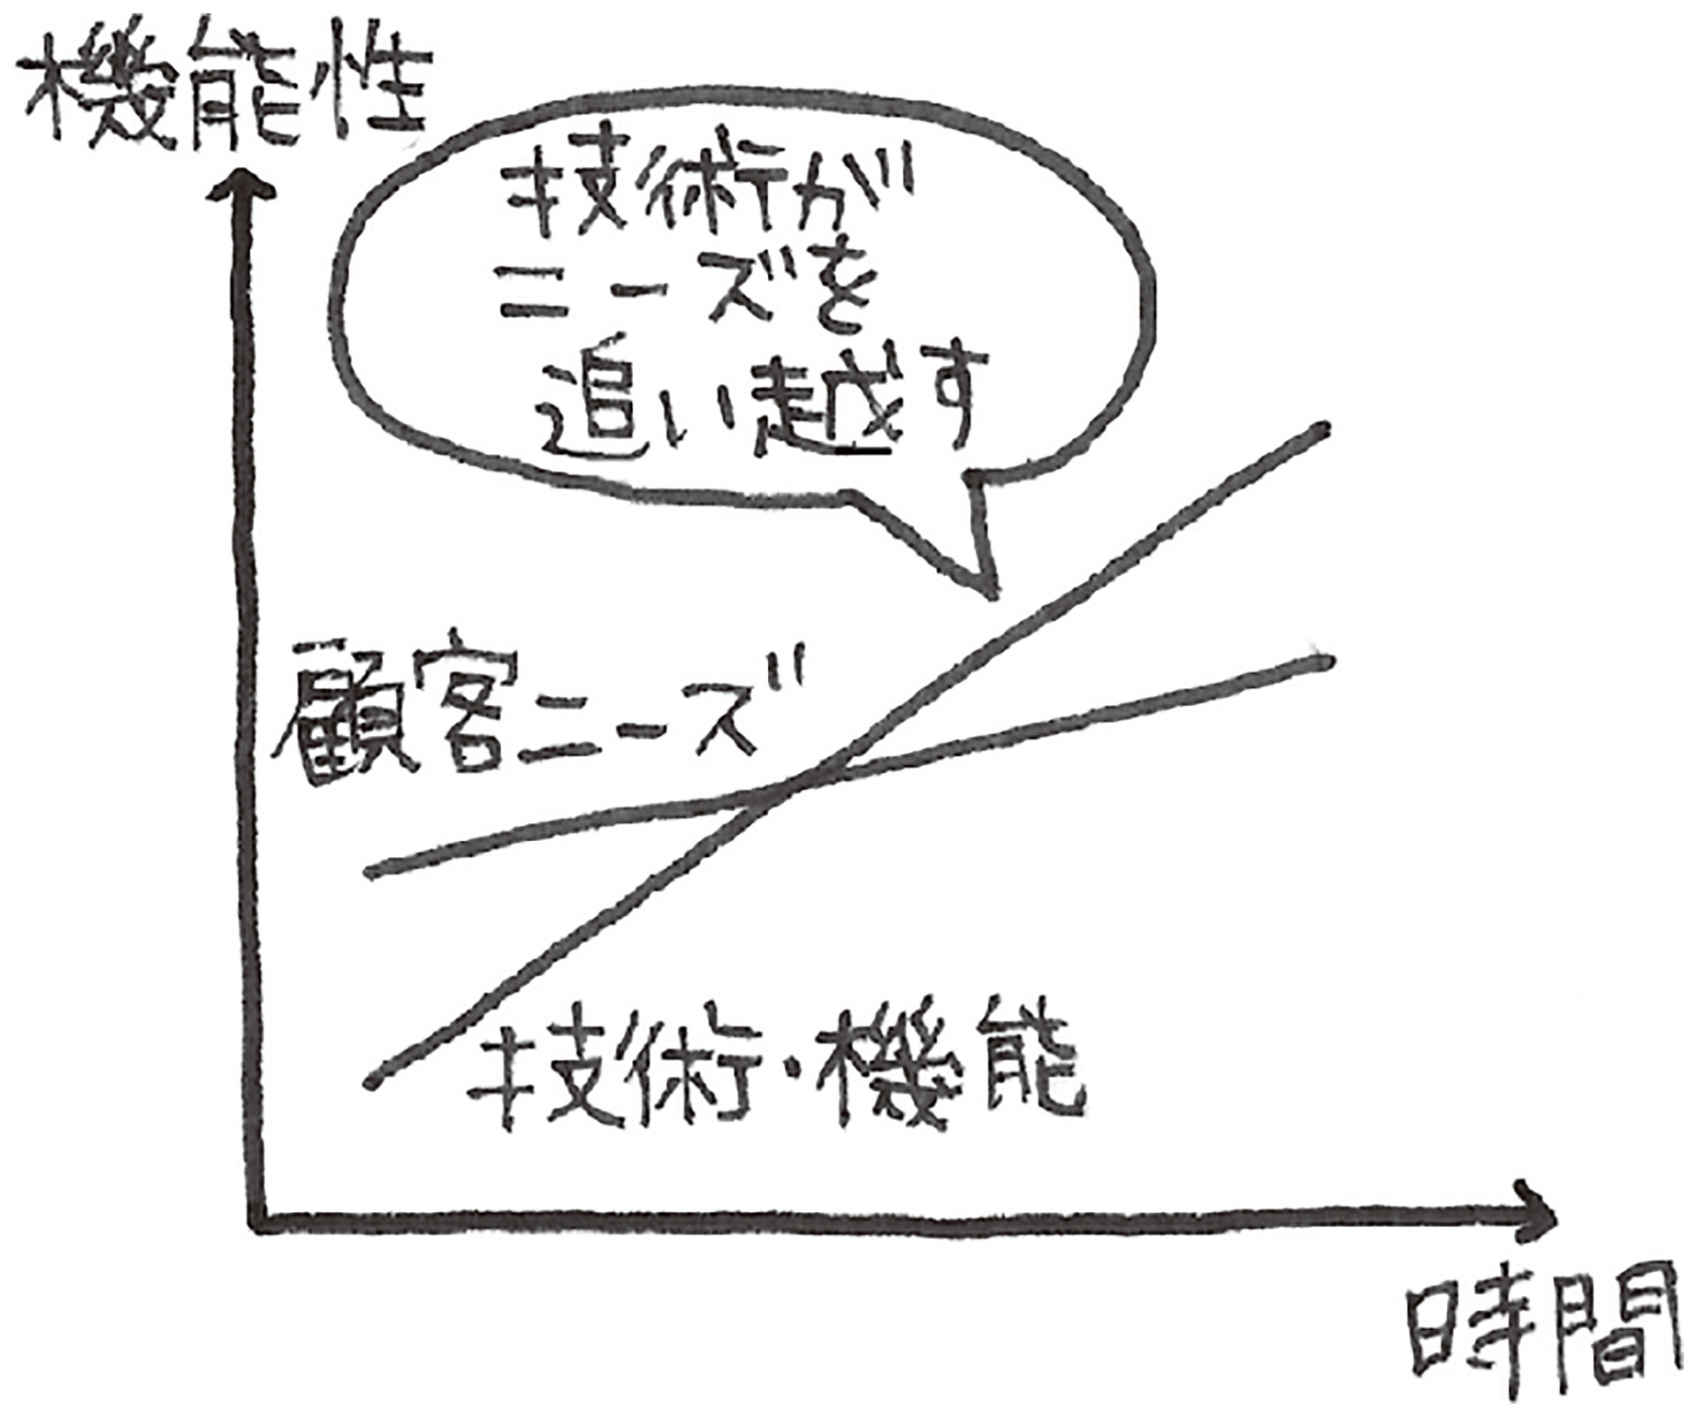 機能性
技術が
ニーズを
追い越す
顧客ニーズ
技術・機能
時間